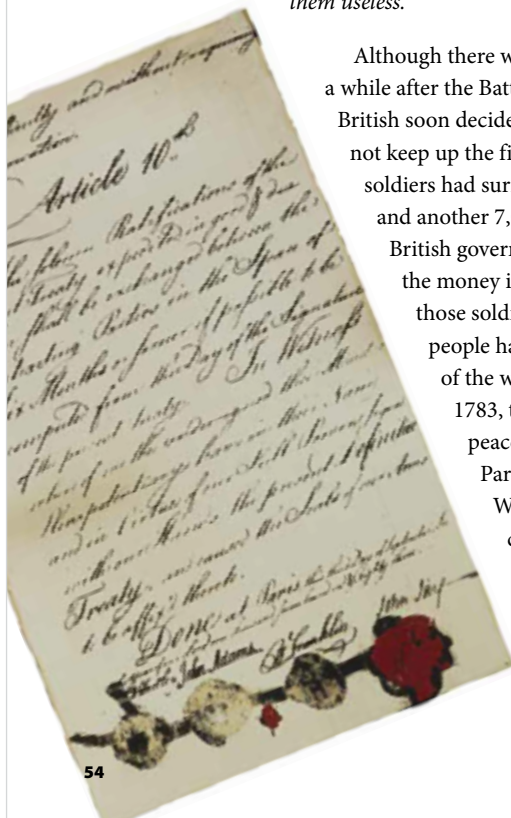 them useless.
Although there w
a while after the Batt
British soon decide
not keep up the fi
soldiers had sur
and another 7,
British govern
the money i
those soldi
people ha
of the w
1783, t
peac
Par
W
culty and without requiring
Article 10th
he solemn Ratifications of the
Treaty expedited in good & due
shall be exchanged between the
tracting Parties in the Space of
ix Months or sooner if possible to be
computed from the Day of the Signature
of the present Treaty. In Witness
of us the undersigned their
Plenipotentiary have in their Name
and in Virtue of our Full Powers
with our Hands the present Definitive
Treaty, and caused the Seals of our Arms
to be affix'd thereto.
Done at Paris this
John Adams. B Franklin John Jay
54